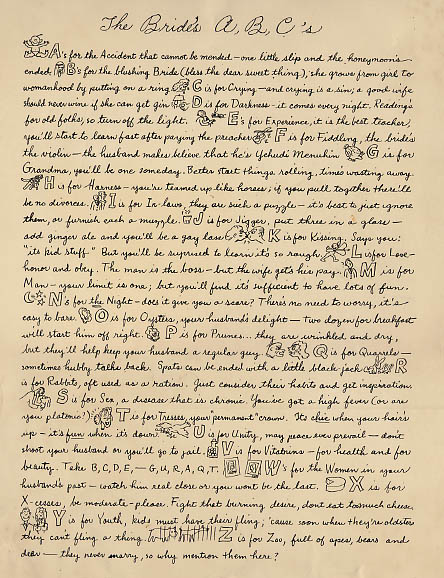 The Bride's A, B, C's
A's for the Accident that cannot be mended - one little slip and the honeymoon's
ended. B's for the blushing Bride (bless the dear sweet thing), she grows from girl to
womanhood by putting on a ring. C is for Crying - and crying is a sin; a good wife
should never wine if she can get gin. D is for Darkness - it comes every night. Reading's
for old folks, so turn off the light. E's for Experience, it is the best teacher,
you'll start to learn fast after paying the preacher. F is for Fiddling, the bride's
the violin - the husband makes believe that he's Yehudi Menuhin. G is for
Grandma, you'll be one someday. Better start things rolling, time's wasting away.
H is for Harness - you're teamed up like horses; if you pull together there'll
be no divorces. I is for In-laws, they are such a puzzle - it's best to just ignore
them, or furnish each a muzzle. J is for Jigger, put three in a glass -
add ginger ale and you'll be a gay lass. K is for Kissing. Says you:
"its kid stuff" But you'll be surprised to learn it's so rough. L is for Love -
honor and obey. The man is the boss - but the wife gets his pay. M is for
Man - your limit is one; but you'll find it's sufficient to have lots of fun.
N's for the Night - does it give you a scare? There's no need to worry, it's
easy to bare. O is for Oysters, your husband's delight - Two dozen for breakfast
will start him off right. P is for Prunes... they are wrinkled and dry,
but they'll help keep your husband a regular guy. Q is for Quarrels -
sometimes hubby talks back. Spats can be ended with a little black-jack. R
is for Rabbits, oft used as a ration. Just consider their habits and get inspiration.
S is for Sex, a disease that is chronic. You've got a high fever (or are
you platonic?) T is for Tresses, your "permanent" crown. It's chic when your hair's
up - it's fun when it's down. U is for Unity, may peace ever prevail - don't
shoot your husband or you'll go to jail. V is for Vitamins - for health and for
beauty. Take B, C, D, E, - G, U, R, A, Q, T. W's for the Women in your
husband's past - watch him real close or you wont be the last. X is for
X-cesses, be moderate - please. Fight that burning desire, dont eat too much cheese.
Y is for Youth, kids must have their fling; 'cause soon when they're oldsters
they cant fling a thing. Z is for Zoo, full of apes, bears and
deer - they never marry, so why mention them here?